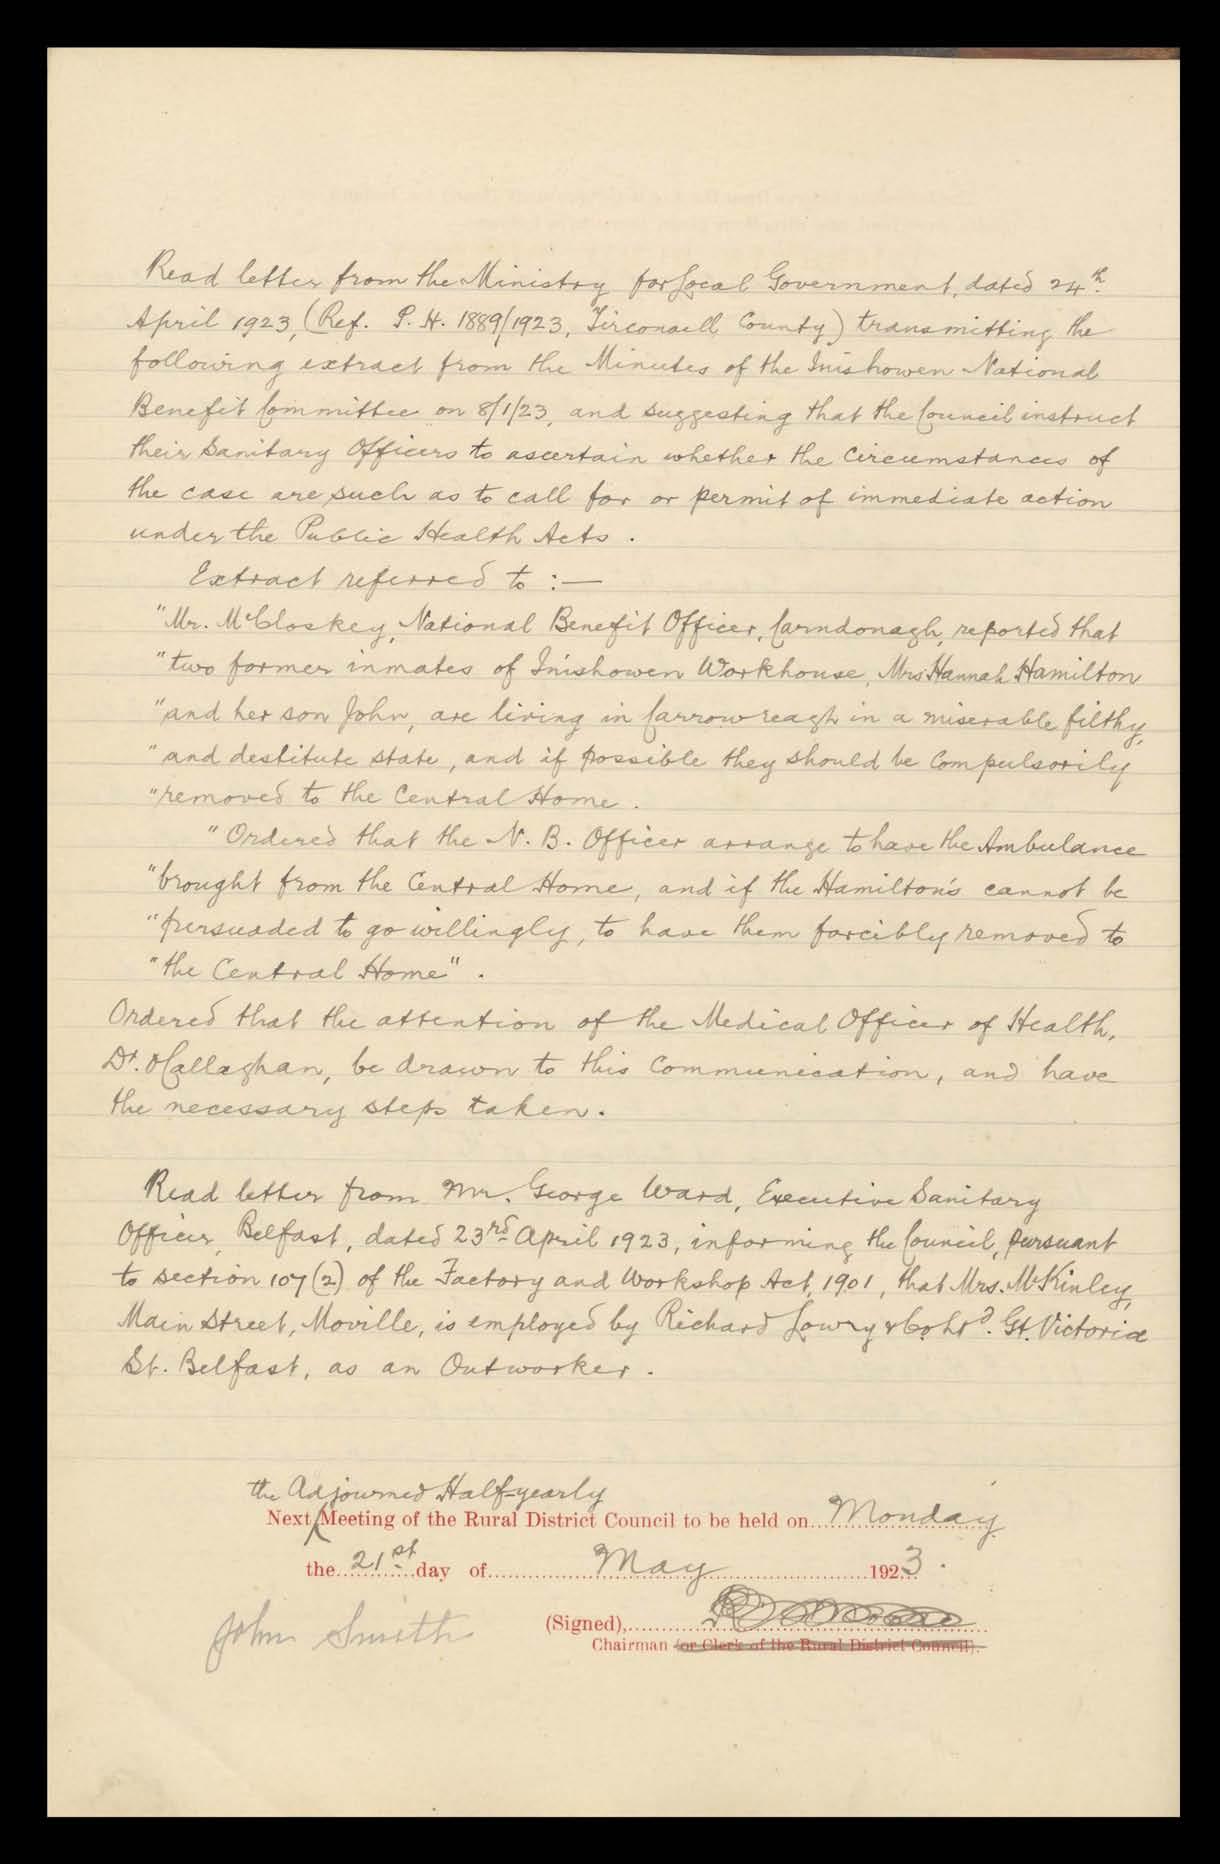 Read letter from the Ministry for Local Government, dated 24th.
April 1923, (Ref. P.H. 1889/1923, Tirconaill County) transmitting the
following extract from the Minutes of the Inishowen National
Benefit Committee on 8/1/23, and suggesting that the Council instruct
their Sanitary Officers to ascertain whether the circumstances of
the case are such as to call for or permit of immediate action
under the Public Health Acts.
Extract referred to :—
"Mr. McCloskey, National Benefit Officer, Carndonagh, reported that
"two former inmates of Inishowen Workhouse, Mrs Hannah Hamilton
"and her son John, are living in Carrowreagh in a miserable filthy,
"and destitute state, and if possible they should be compulsorily
"removed to the Central Home.
"Ordered that the N.B. Officer arrange to have the Ambulance
"brought from the Central Home, and if the Hamilton's cannot be
"persuaded to go willingly, to have them forcibly removed to
"the Central Home".
Ordered that the attention of the Medical Officer of Health,
Dr. O'Callaghan, be drawn to this communication, and have
the necessary steps taken.
Read letter from Mr. George Ward, Executive Sanitary
Officer, Belfast, dated 23rd April 1923, informing the Council, pursuant
to section 107(2) of the Factory and Workshop Act, 1901, that Mrs. McKinley,
Main Street, Moville, is employed by Richard Lowry & Co. Ltd. Gt. Victoria
St. Belfast, as an Outworker.
the Adjourned Half-yearly
Next Meeting of the Rural District Council to be held on Monday
the 21st day of May 1923.
John Smith (Signed),
Chairman (or Clerk of the Rural District Council).